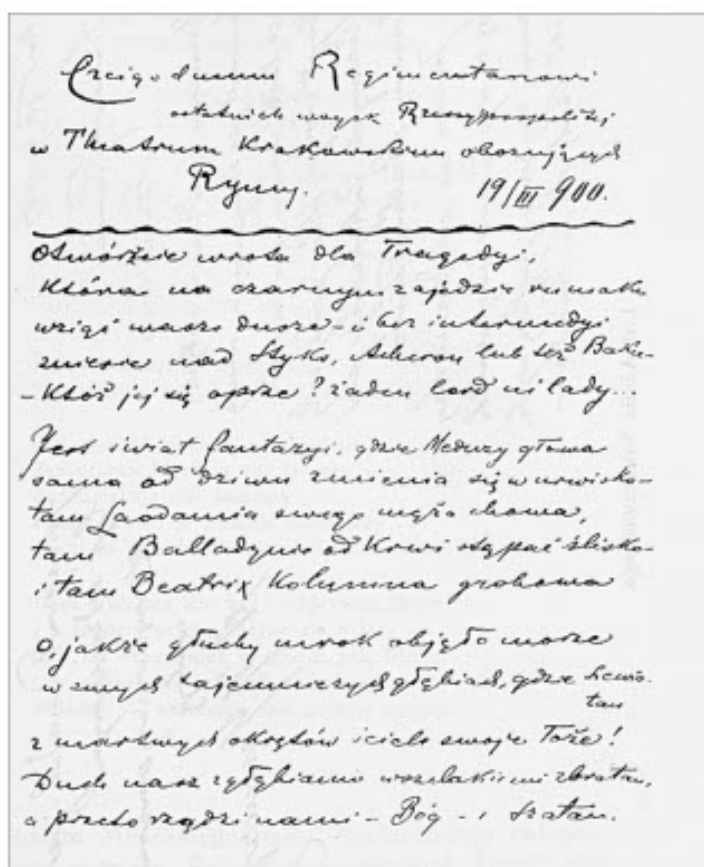 Czcigodnemu Regimentarzowi
ostatnich wojsk Rzeczypospolitej
w Theatrum Krakowskim obozujących
Rymy. 19/III 900.
Otwórzcie wrota dla Tragedyi,
która na czarnym zajedzie rumaku
wziąć wasze dusze - i bez intermedyi
zniesie nad Styks, Acheron lub też Baku -
- Któż jej się oprze? żaden lord ni lady...
Jest świat fantazyi, gdzie Meduzy głowa
sama od dziwu zmienia się w urwisko -
tam Laodamia swego męża chowa,
tam Balladynie od krwi stąpać ślisko -
i tam Beatrix Kolumna grobowa
O, jakże głuchy mrok objęło morze
w swych tajemniczych głębiach, gdzie Lewia-
tan
z martwych okrętów ściele swoje łoże!
Duch nasz z głębiami wszelakiemi zbratan,
a przeto rządzi nami - Bóg - i Szatan.